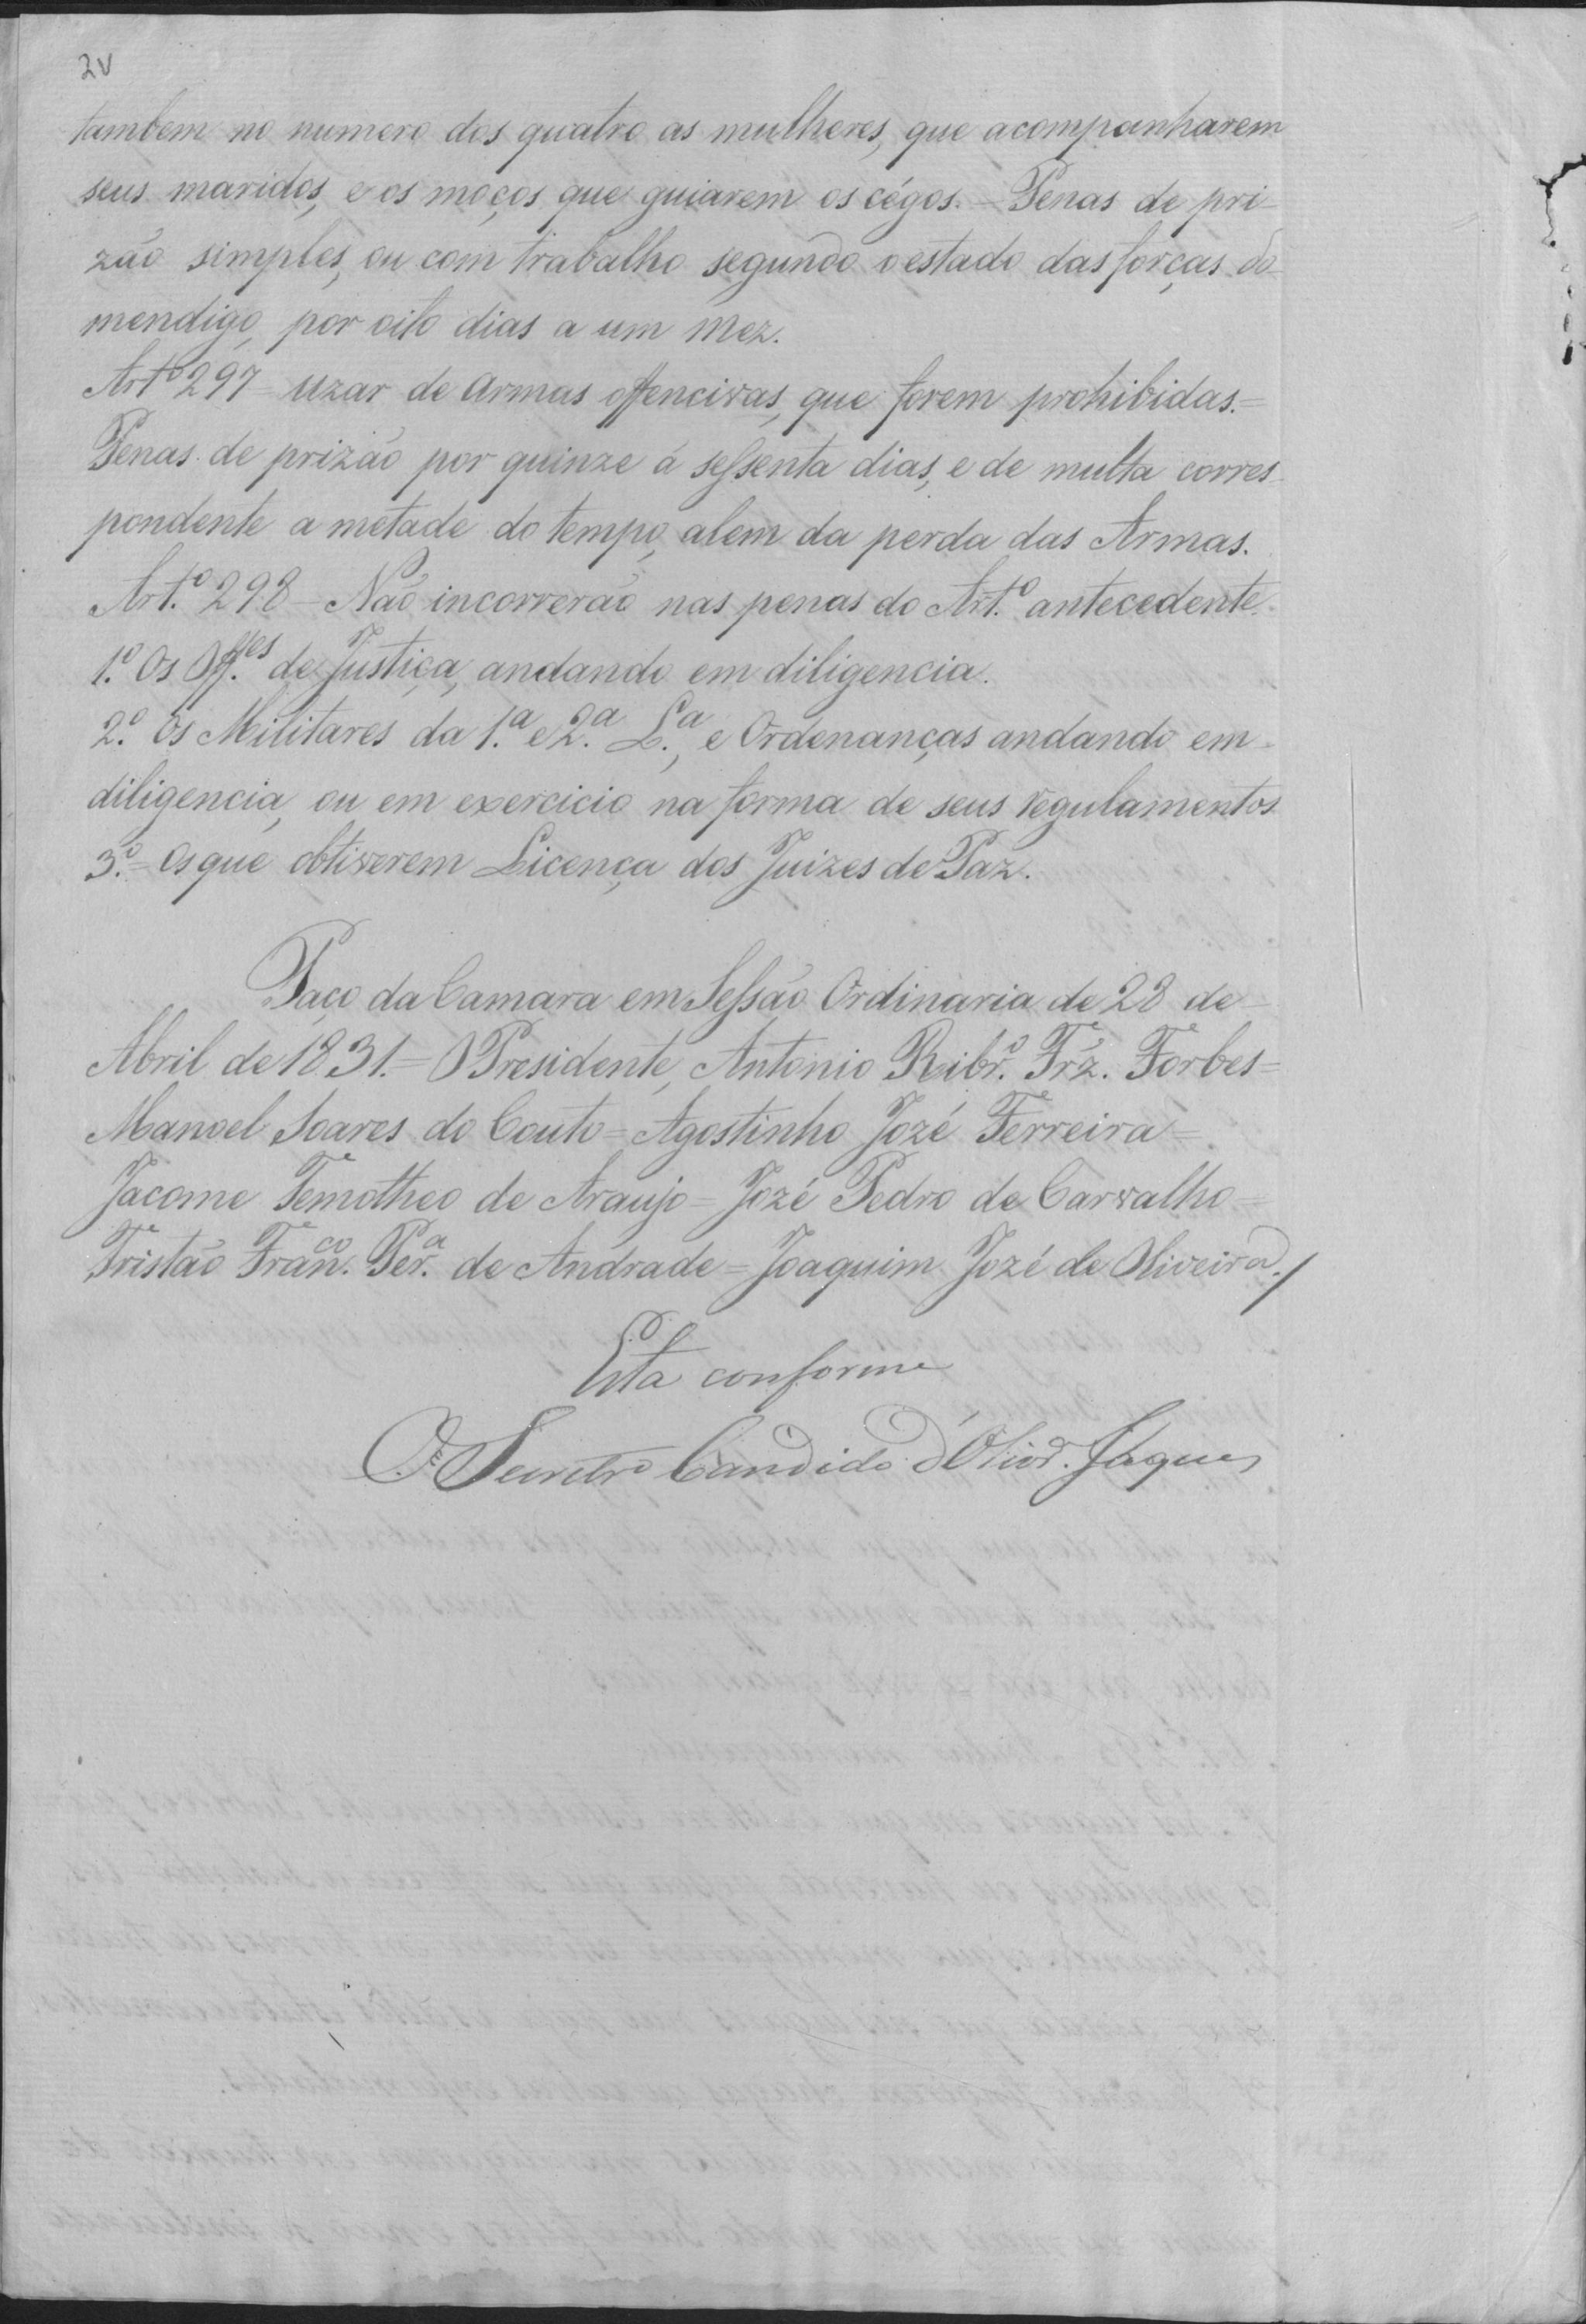 2v
tambem no numero dos quatro as mulheres, que acompanharem
seus maridos, e os moços que guiarem os cégos. - Penas de pri-
zão simples, ou com trabalho segundo o estado das forças do
mendigo, por oito dias a um mez.
Artº 297 - Uzar de Armas offencivas, que forem prohibidas. =
Penas de prizão por quinze á sessenta dias, e de multa corres-
pondente a metade do tempo, alem da perda das Armas.
Art.º 298 - Não incorrerão nas penas do Art.º antecedente.
1.º Os Off.es de Justiça, andando em diligencia.
2.º Os Militares da 1.ª e 2.ª L.ª, e Ordenanças andando em
diligencia, ou em exercicio na forma de seus regulamentos
3.º - Os que obtiverem Licença dos Juizes de Paz.
Paço da Camara em Sessão Ordinaria de 28 de
Abril de 1831. = O Presidente, Antonio Ribr.º Frz. Forbes =
Manoel Soares do Couto = Agostinho Jozé Ferreira =
Jacome Temotheo de Araujo = Jozé Pedro de Carvalho =
Tristão Fran.co Per.a de Andrade = Joaquim Jozé de Oliveira./
Esta conforme
O Secretrº Candido d'Olivr.ª Jaques